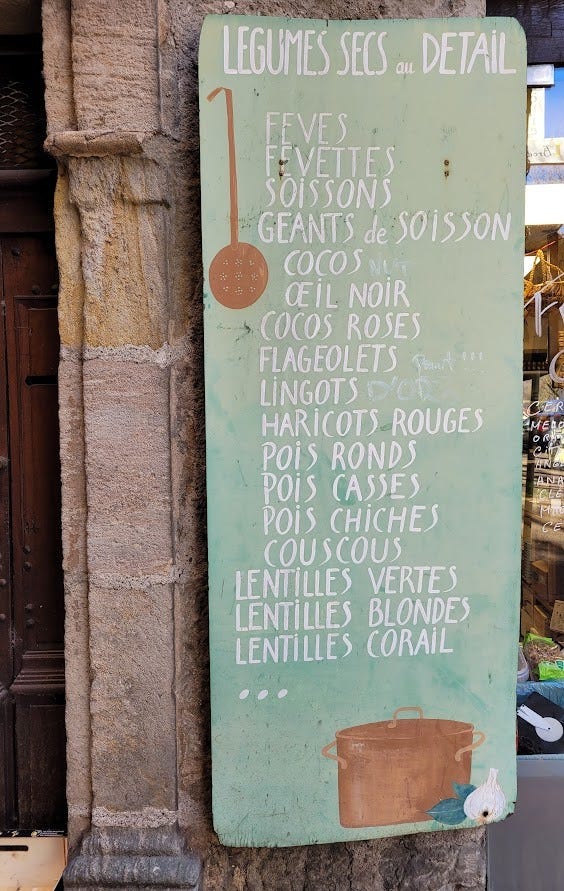 LEGUMES SECS au DETAIL
FEVES
FEVETTES
SOISSONS
GEANTS de SOISSON
COCOS NUT
ŒIL NOIR
COCOS ROSES
FLAGEOLETS !!!
LINGOTS D'OR
HARICOTS ROUGES
POIS RONDS
POIS CASSES
POIS CHICHES
COUSCOUS
LENTILLES VERTES
LENTILLES BLONDES
LENTILLES CORAIL
...